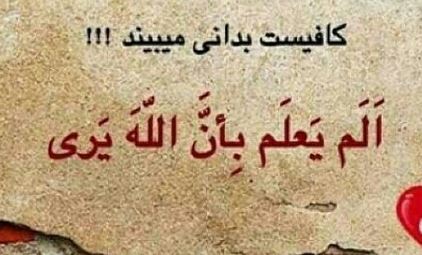 کافیست بدانی میبیند !!!
اَلَم یَعلَم بِأنَّ اللّهَ یَری